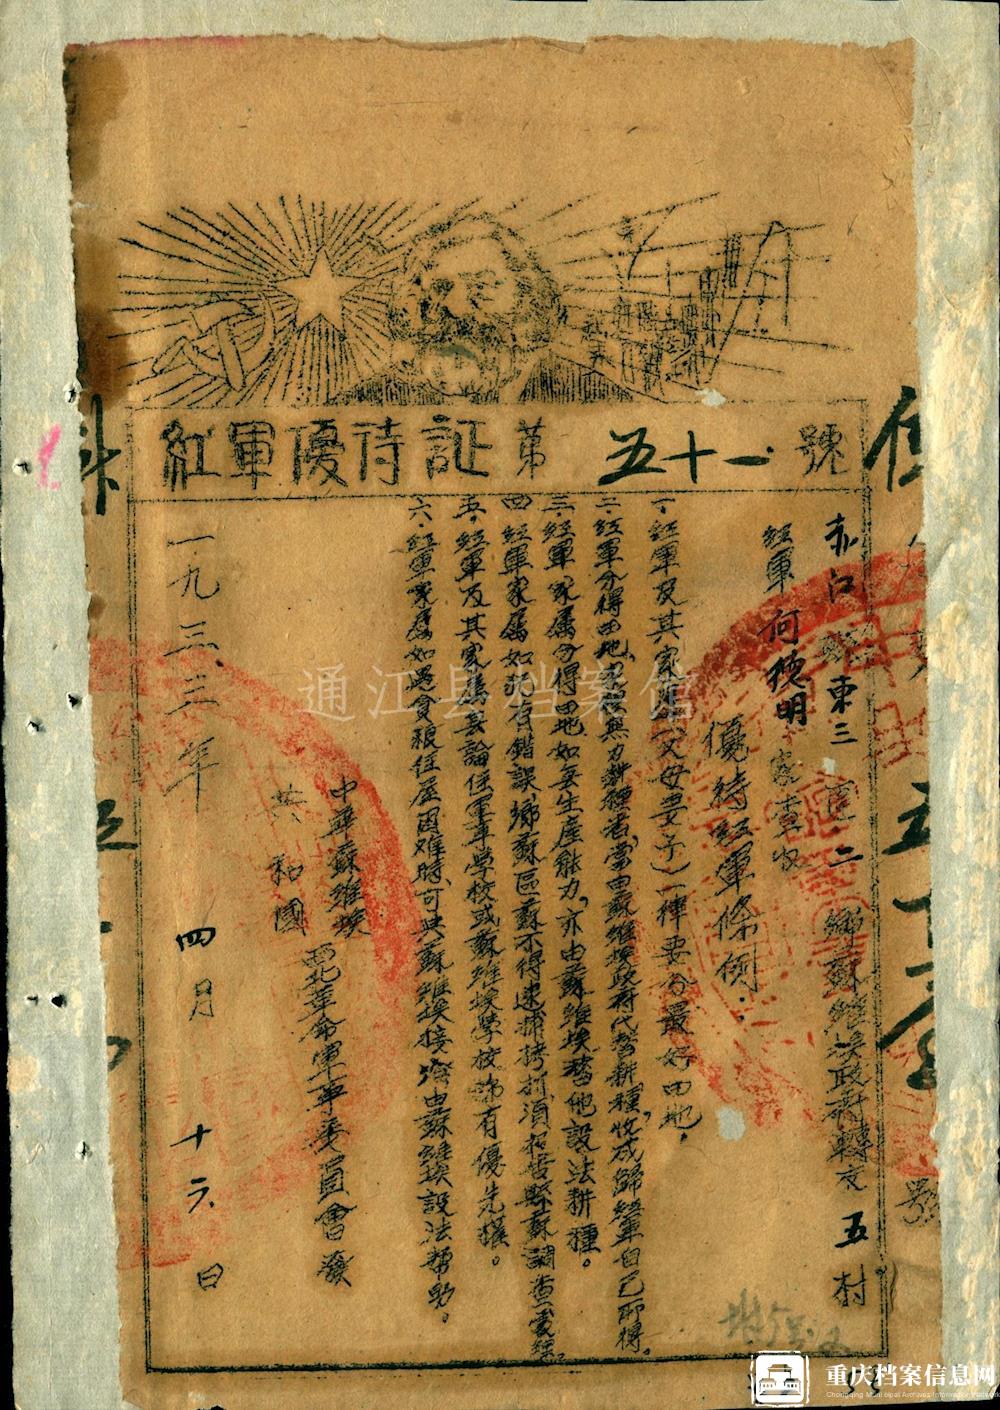 紅軍優待証 第 五十一 號
赤江 縣 東三 區 二 鄉蘇維埃政府轉交 五 村
紅軍 何德明 家
優待紅軍條例：
一．紅軍及其家屬（父母妻子）一律要分最好田地．
二．紅軍分得田地，家裡無力耕種者，當由蘇維埃政府代替耕種，收成歸紅軍自己所得。
三．紅軍家屬分得田地如無生產能力，亦由蘇維埃替他設法耕種。
四 紅軍家屬如部有錯誤，鄉蘇區蘇不得逮捕拷打，須報告縣蘇調查處理。
五．紅軍及其家屬無論住軍事學校或蘇維埃學校都有優先權。
六．紅軍家屬如遇食粮住屋困难時，可與蘇維埃接洽由蘇維埃設法幫助。
中華蘇維埃
共和國
西北革命軍事委員會發
一九三三年 四月 十六 日
號
通江县档案馆
重庆档案信息网
Chongqing Municipal Archives Information Network